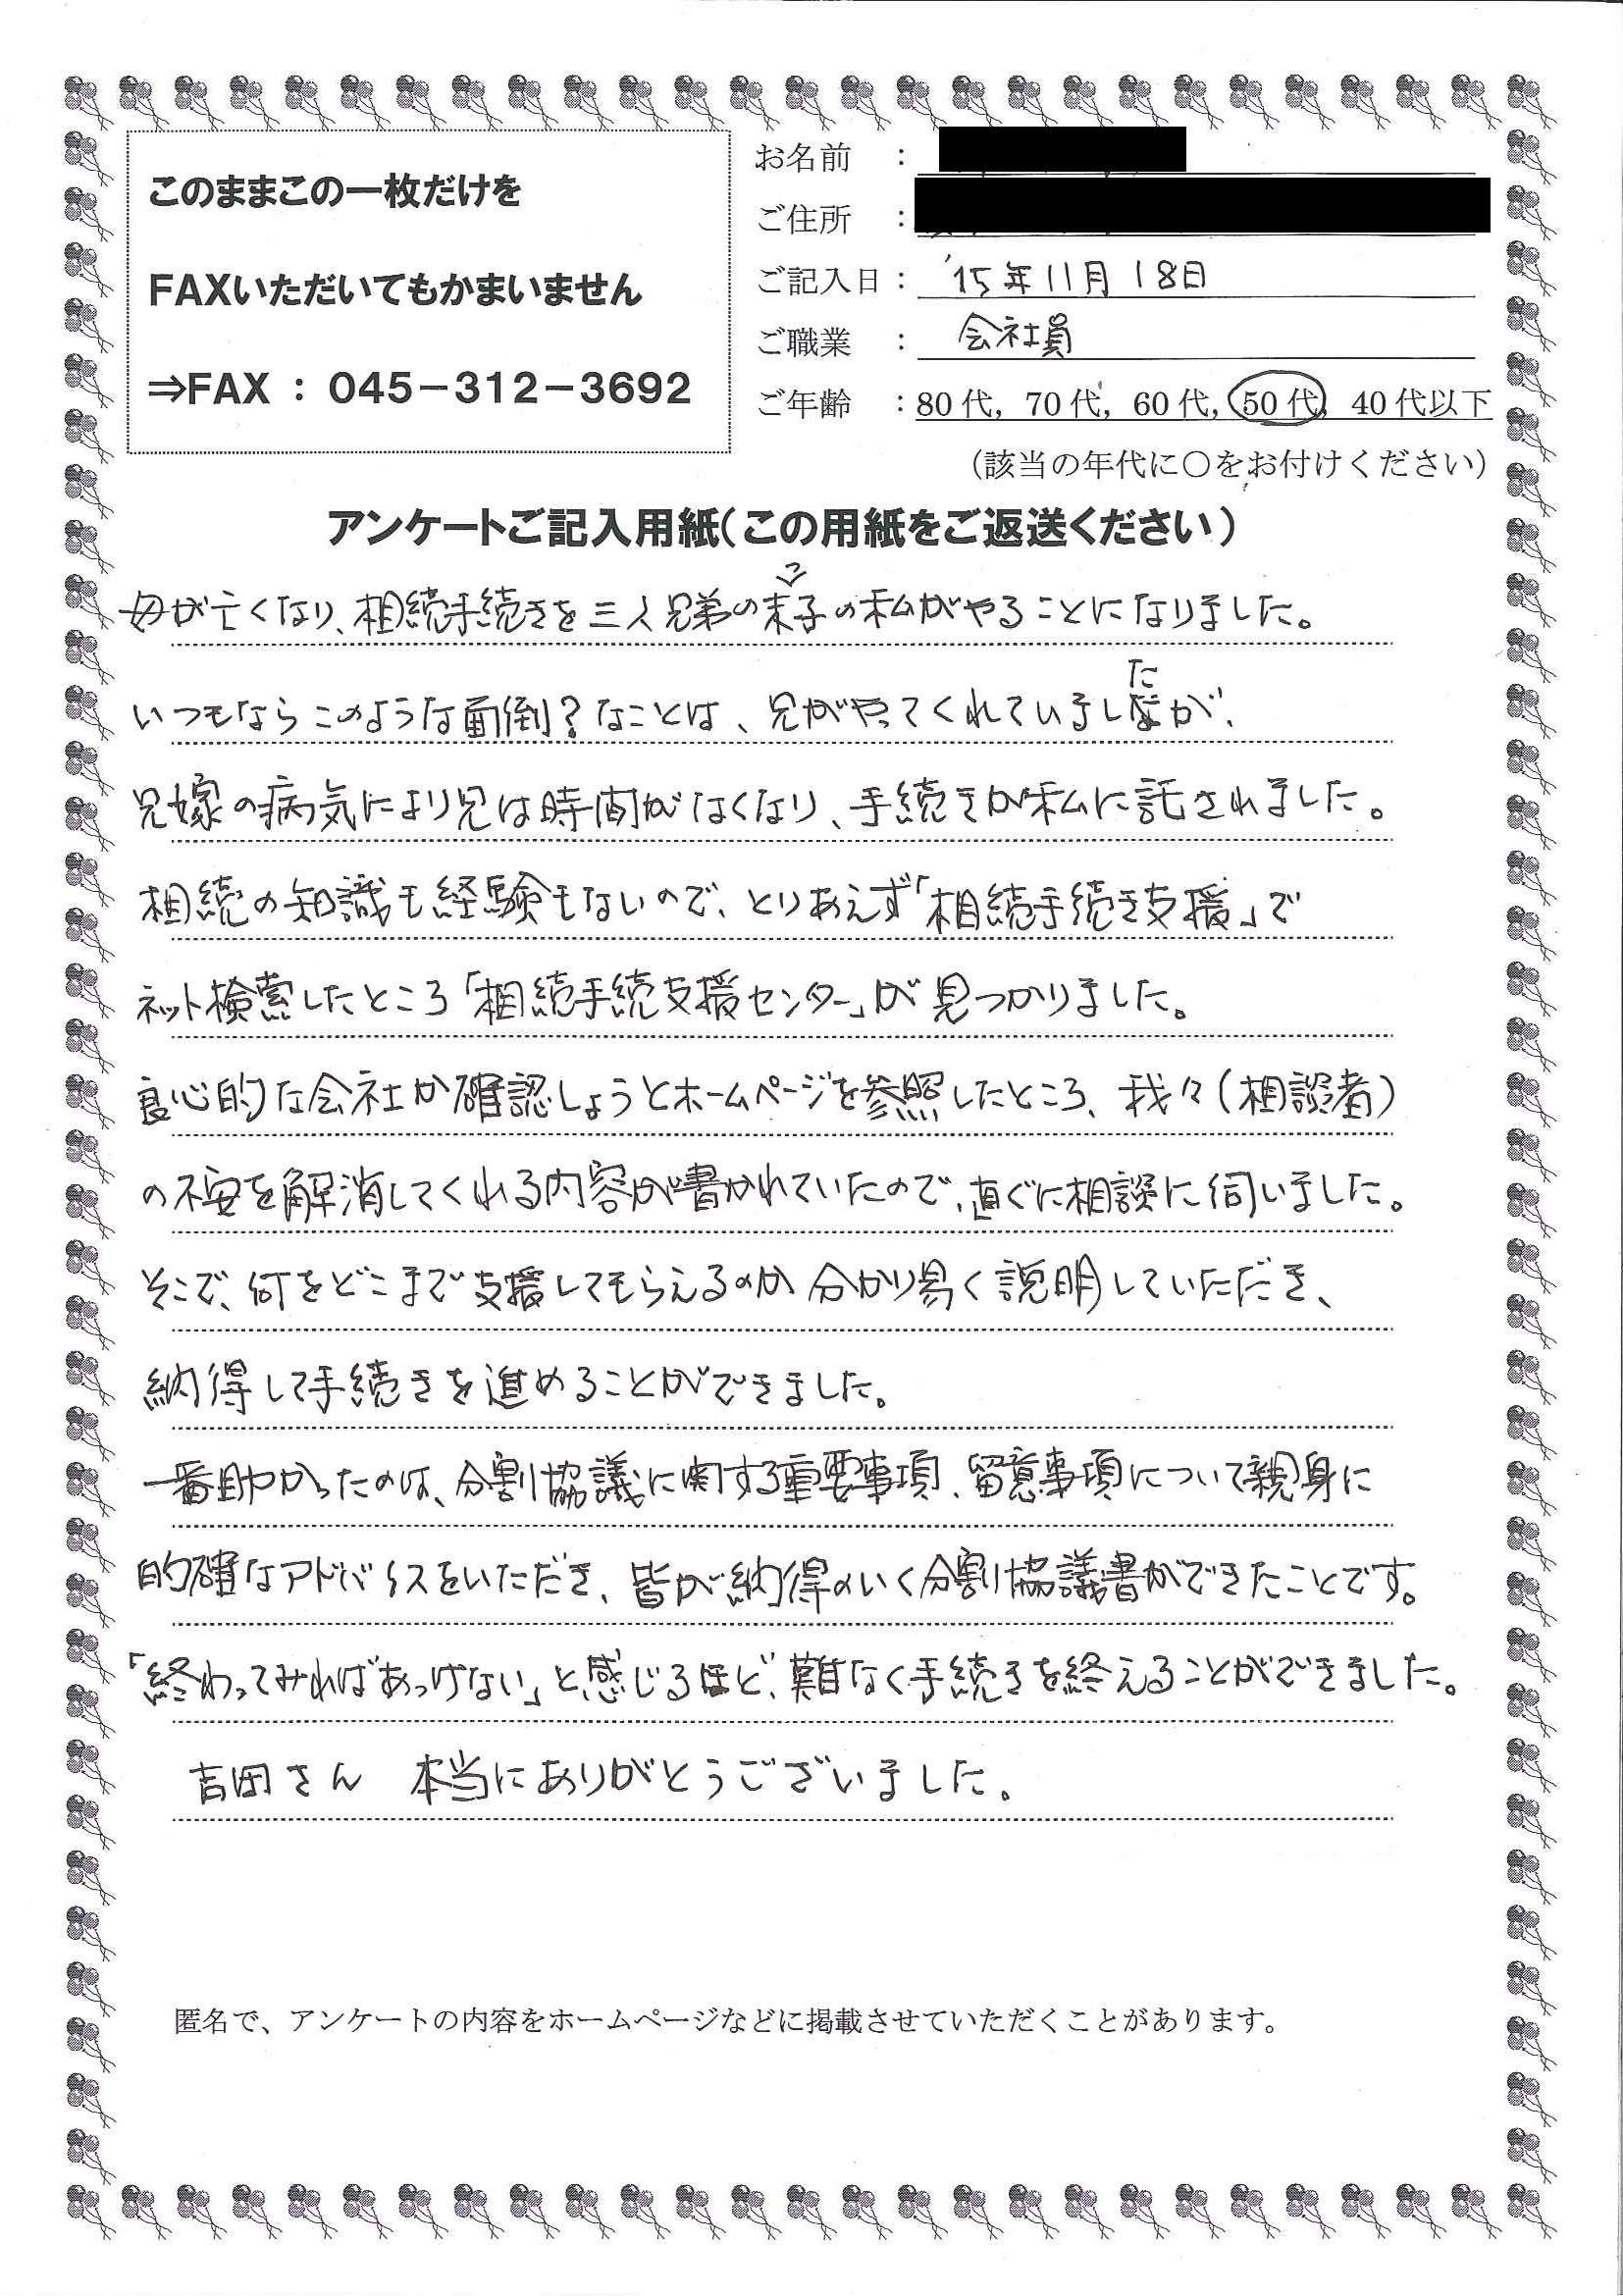 このままこの一枚だけを
FAXいただいてもかまいません
⇒FAX：045－312－3692
お名前　：
ご住所　：
ご記入日：'15年11月18日
ご職業　：会社員
ご年齢　：80代，70代，60代，50代，40代以下
（該当の年代に○をお付けください）
アンケートご記入用紙（この用紙をご返送ください）
母が亡くなり、相続手続きを三人兄弟の末っ子の私がやることになりました。
いつもならこのような面倒？なことは、兄がやってくれていましたが、
兄嫁の病気により兄は時間がなくなり、手続きが私に託されました。
相続の知識も経験もないので、とりあえず「相続手続き支援」で
ネット検索したところ「相続手続支援センター」が見つかりました。
良心的な会社か確認しようとホームページを参照したところ、我々（相談者）
の不安を解消してくれる内容が書かれていたので、直ぐに相談に伺いました。
そこで、何をどこまで支援してもらえるのか分かり易く説明していただき、
納得して手続きを進めることができました。
一番助かったのは、分割協議に関する重要事項、留意事項について親身に
的確なアドバイスをいただき、皆が納得のいく分割協議書ができたことです。
「終わってみればあっけない」と感じるほど、難なく手続きを終えることができました。
吉田さん　本当にありがとうございました。
匿名で、アンケートの内容をホームページなどに掲載させていただくことがあります。